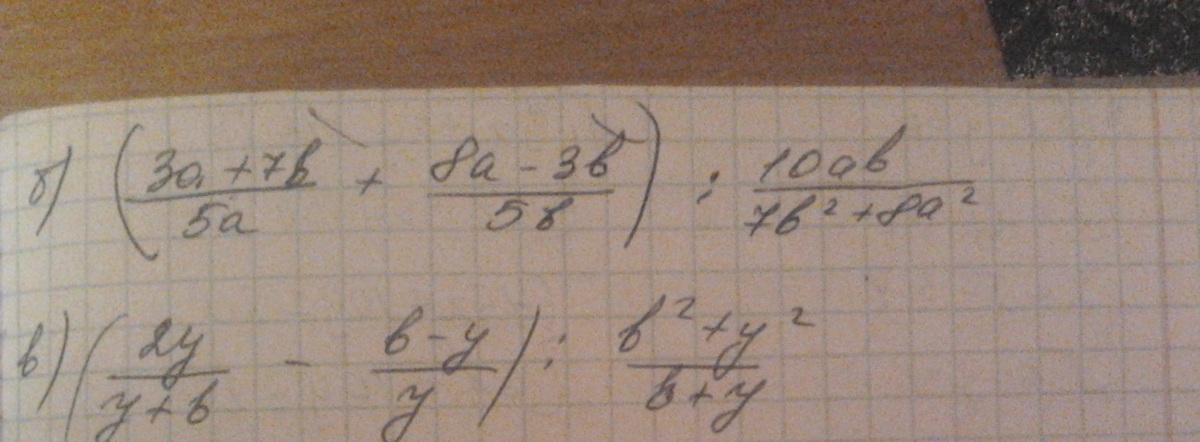 б) ((3a + 7b)/(5a) + (8a - 3b)/(5b)) : (10ab)/(7b² + 8a²)
в) ((2y)/(y + b) - (b - y)/(y)) : (b² + y²)/(b + y)